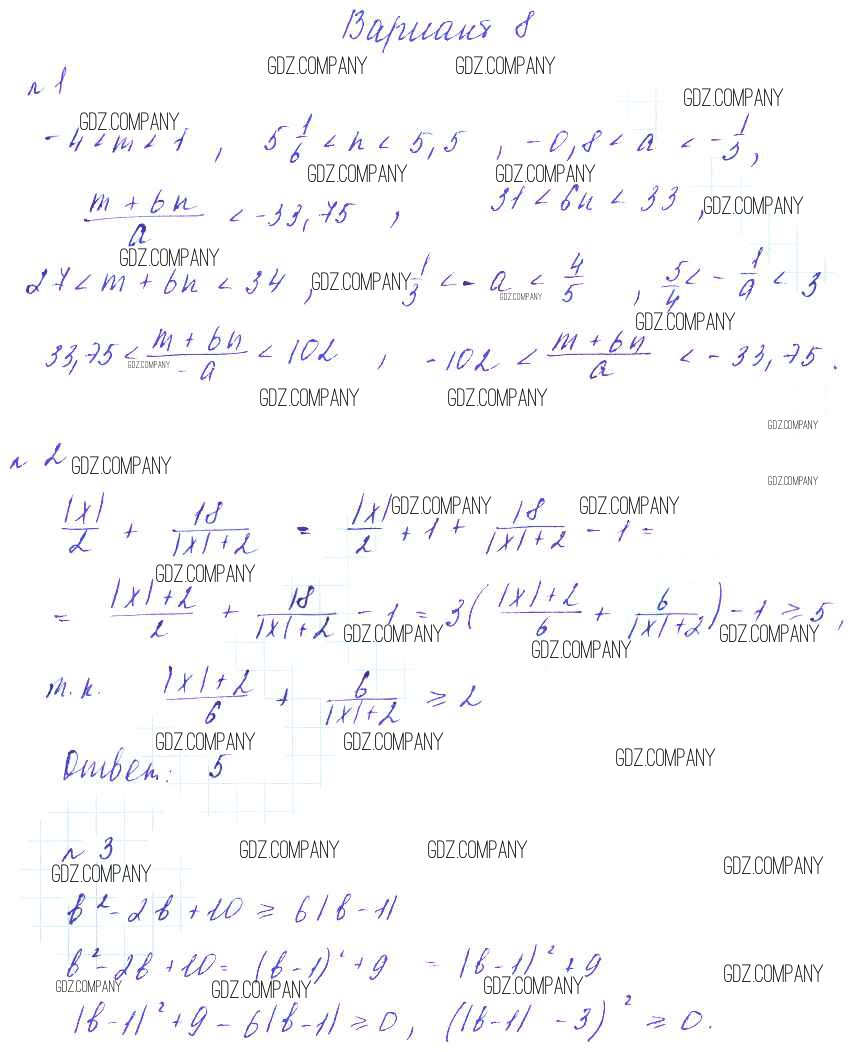 Вариант 8
GDZ.COMPANY GDZ.COMPANY
№ 1
GDZ.COMPANY
GDZ.COMPANY
-4 < m < 1 , 5 1/6 < n < 5,5 , -0,8 < a < -1/3,
GDZ.COMPANY GDZ.COMPANY
(m + 6n)/a < -33,75 , 31 < 6n < 33 , GDZ.COMPANY
GDZ.COMPANY
27 < m + 6n < 34 , GDZ.COMPANY 1/3 < -a < 4/5 , 5/4 < -1/a < 3
GDZ.COMPANY
GDZ.COMPANY
33,75 < (m + 6n)/(-a) < 102 , -102 < (m + 6n)/a < -33,75 .
GDZ.COMPANY
GDZ.COMPANY GDZ.COMPANY
GDZ.COMPANY
№ 2 GDZ.COMPANY
GDZ.COMPANY
GDZ.COMPANY GDZ.COMPANY
|x|/2 + 18/(|x|+2) = |x|/2 + 1 + 18/(|x|+2) - 1 =
GDZ.COMPANY
= (|x|+2)/2 + 18/(|x|+2) - 1 = 3((|x|+2)/6 + 6/(|x|+2)) - 1 ≥ 5,
GDZ.COMPANY GDZ.COMPANY
GDZ.COMPANY
т.к. (|x|+2)/6 + 6/(|x|+2) ≥ 2
GDZ.COMPANY GDZ.COMPANY
GDZ.COMPANY
Ответ: 5
№ 3 GDZ.COMPANY GDZ.COMPANY
GDZ.COMPANY GDZ.COMPANY
b² - 2b + 10 ≥ 6|b - 1|
b² - 2b + 10 = (b - 1)² + 9 = |b - 1|² + 9
GDZ.COMPANY
GDZ.COMPANY GDZ.COMPANY GDZ.COMPANY
|b - 1|² + 9 - 6|b - 1| ≥ 0, (|b - 1| - 3)² ≥ 0.